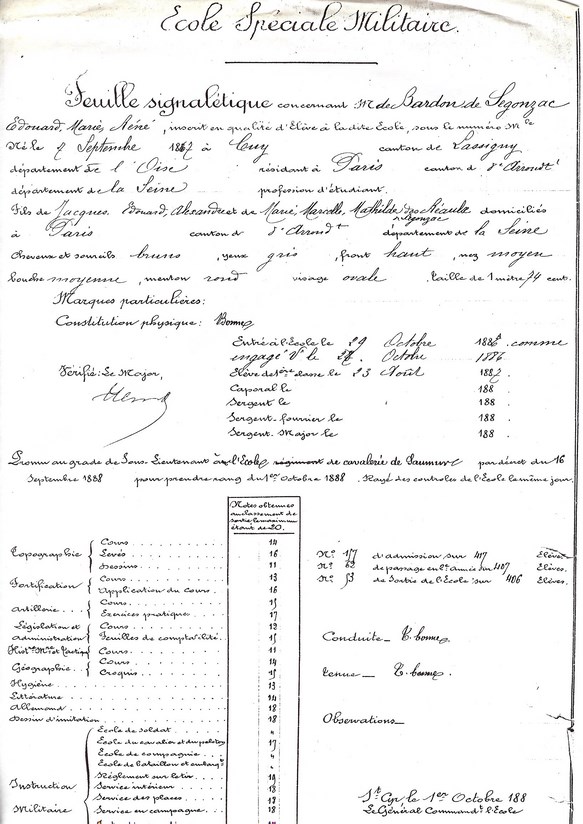 Ecole Spéciale Militaire.
Feuille signalétique concernant M. de Bardon de Segonzac
Edouard, Marie, Réné, inscrit en qualité d'Elève à ladite Ecole, sous le numéro Mle
Né le 7 Septembre 1867 à Cuy canton de Lassigny
département de l'Oise résidant à Paris canton d'Arrondt
département de la Seine profession d'étudiant.
Fils de Jacques, Edouard, Alexandre et de Marie, Marcelle, Mathilde domiciliés
à Paris canton d'Arrondt département de la Seine
Cheveux et sourcils bruns, yeux gris, front haut, nez moyen
bouche moyenne, menton rond visage ovale. taille de 1 mètre 74 cent.
Marques particulières:
Constitution physique: Bonne
Entré à l'Ecole le 29 Octobre 1886 comme
engagé Vre le Octobre 1886
Vérifié: Le Major, Elève de 1ère classe le 23 Août 1887.
Caporal le 188 .
Sergent le 188 .
Sergent-fourrier le 188 .
Sergent-Major le 188 .
Promu au grade de Sous-Lieutenant à l'Ecole régiment de cavalerie de Saumur par décret du 16
Septembre 1888 pour prendre rang du 1er Octobre 1888. Rayé des contrôles de l'Ecole le même jour.
Notes obtenues
au classement de
sortie le maximum
étant de 20.
Topographie { Cours 14
Levés 16 No 117 d'admission sur 417 Elèves
Dessins 11 No 62 de passage en 1ère année sur 407 Elèves.
Fortification { Cours 13 No 53 de Sortie de l'Ecole sur 406 Elèves.
Application du cours 16
Artillerie { Cours 15
Exercices pratiques 17
Législation et administration { Cours 13
Feuilles de comptabilité 15 Conduite_ T. bonne
Histre Mre et Tactique { Cours 11
Géographie { Cours 14
Croquis 15 tenue_ T. bonne
Hygiène 13
Littérature 14
Allemand 18
Dessin d'imitation 18 Observations_
Instruction Militaire { Ecole de soldat "
Ecole du cavalier et du peloton 17
Ecole de compagnie "
Ecole de bataillon et "
Règlement sur le tir 19
Service intérieur 18
Service des places 18 St Cyr le 1er Octobre 188
Service en campagne 18 Le Général Commandt l'Ecole